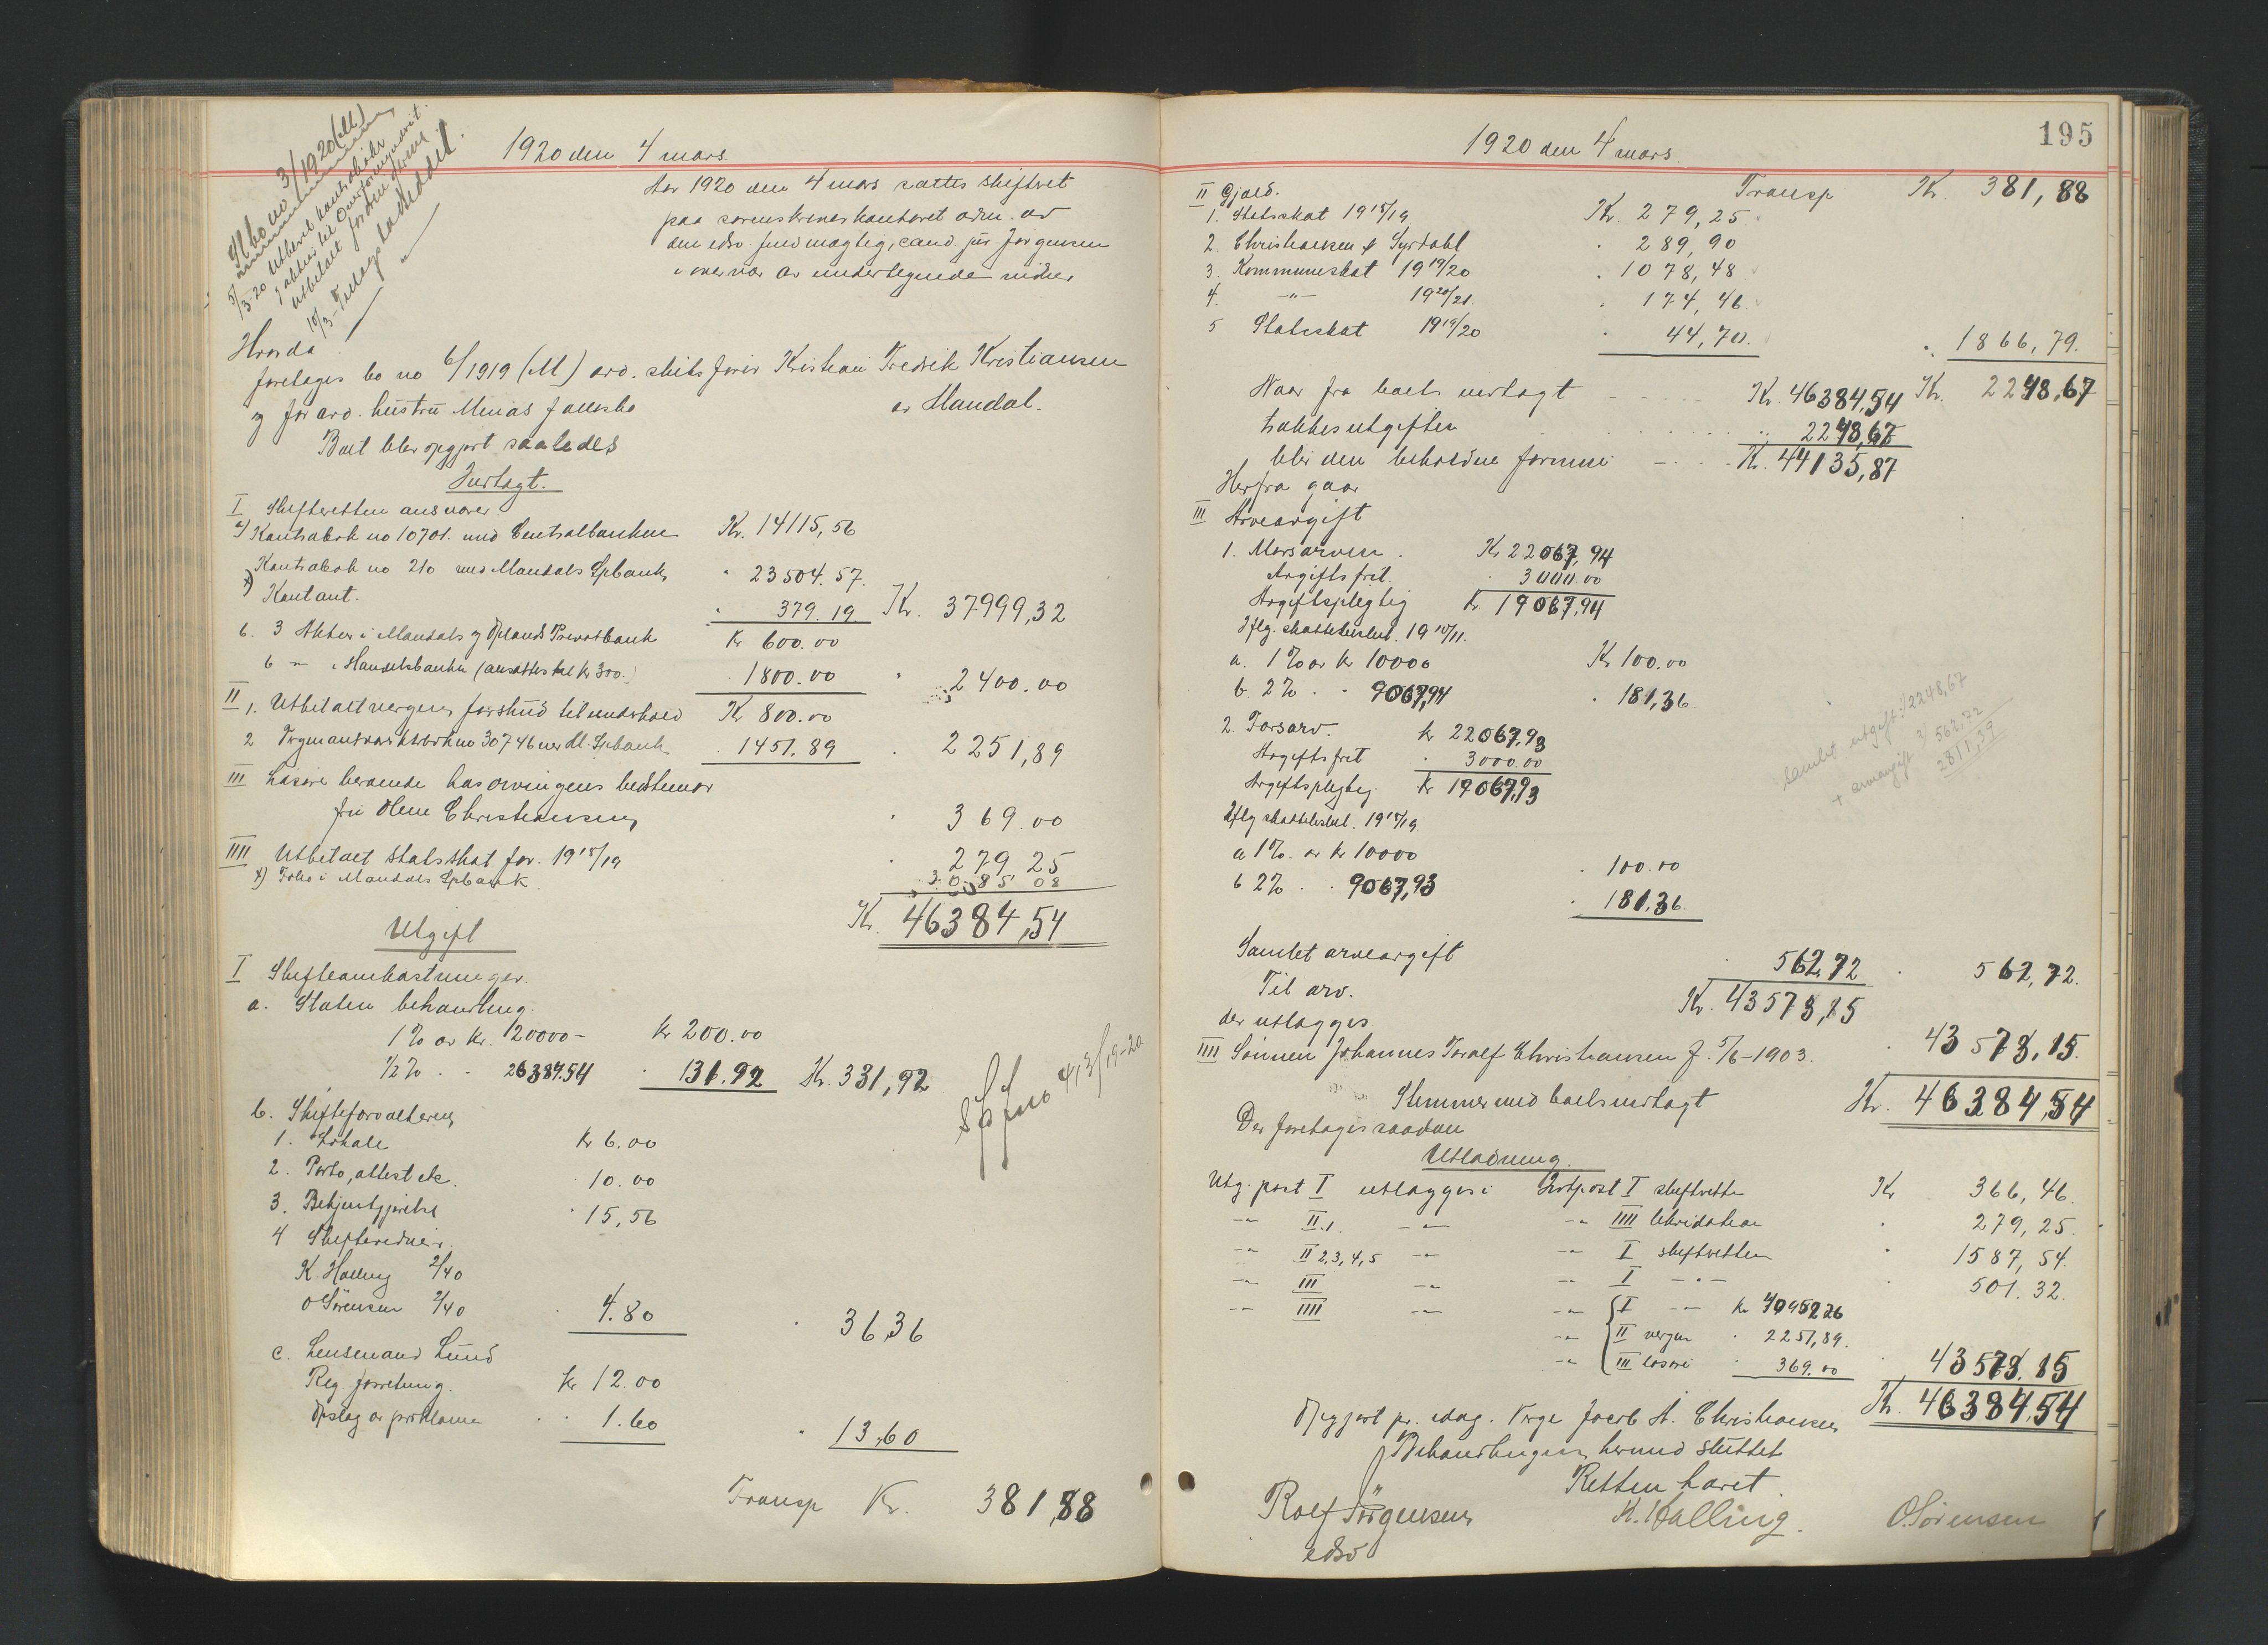 1920 den 4 mars.
Aar 1920 den 4 mars sattes skifteret
paa sorenskriverkontoret adm. av
den edsv. fuldmægtig, cand. jur Jørgensen
i overvær av undertegnede vidner
Hvorda
foretages bo no 6/1919 (M) avd. skibsfører Kristian Fredrik Kristiansen
og før avd. hustru Minas fællesbo av Mandal.
Boet blev opgjort saaledes
Indtægt.
I Skifteretten ansvarer
a) Kontrabok no 10701. med Centralbanken Kr. 14115,56
Kontrabok no 210 med Mandals Spbank " 23504.57.
x) Kontant. " 379.19 Kr. 37999,32
b. 3 Aktier i Mandals og Oplands Privatbank Kr 600.00
6 " i Handelsbanken (ansattes til kr 300.) 1800.00 " 2400.00
II 1. Utbetalt vergens forskud til underhold Kr 800.00
2 Vergens kontrabok no 30746 ved M. Spbank 1451.89 . 2251,89
III Løsøre beroende hos arvingens bedstemor
fru Oline Christiansen . 369.00
IIII Utbetalt statsskat for 1918/19 . 279 25
x) Folio i Mandals Spbank. 3085 08
Kr. 46384,54
Utgift
I Skifteomkostninger.
a. Staten behandling.
1% av Kr. 20000 - Kr 200.00
1/2% . . 26384.54 . 131.92 Kr. 331,92
b. Skifteforvalteren
1. Lokale Kr 6.00
2. Porto, attest etc. . 10.00
3. Bekjentgjørelse . 15,56
4 Skiftevidner.
K. Halling 2/40
O Sørensen 2/40 . 4.80 . 36,36
c. Lensmand Lund
Reg. forretning. Kr 12.00
Opslag av proklama . . 1.60 . 13,60
Transp Kr. 381,88
195
1920 den 4 mars.
Transp Kr. 381,88
II Gjæld.
1. Statsskat 1918/19 Kr. 279,25.
2. Christiansen & Syrdahl . 289,90
3. Kommuneskat 1919/20 . 1078,48
4. -"- 1920/21. . 174,46
5 Statsskat 1919/20 . 44,70. . 1866,79.
Kr. 2248,67
Naar fra boets indtægt Kr. 46384,54
trækkes utgiften 2248,67
blir den beholdne formue Kr. 44135,87
Herfra gaar
III Arveavgift
1. Morsarven. Kr 22067,94
Avgiftsfrit. . 3000.00
Avgiftspligtig Kr 19067,94
Iflg. skattebeslut. 1910/11.
a. 1% av kr 10000 Kr 100.00
b. 2% . . 9067,94 . 181,36.
2. Farsarv. Kr 22067,93
Avgiftsfrit . 3000.00
Avgiftspligtig Kr 19067,93
Iflg skattebeslut. 1918/19
a 1%. av kr 10000 . 100.00
b 2% . . 9067,93 . 181.36
Samlet utgift: 2248,67
+ arveavgift 562,72
2811,39
Samlet arveavgift . 562,72 . 562,72.
Til arv. Kr. 43573,15
der utlægges
IIII Sønnen Johannes Toralf Christiansen f. 5/6-1903. . 43573,15.
Stemmer med boets indtægt Kr. 46384,54
Der foretages saadan
Utlodning.
Utg. post I utlægges i Indtpost I skifteretten Kr 366,46.
-"- II.1. -"- -"- IIII likvidation . 279,25.
-"- II 2,3,4,5 -"- -"- I skifteretten . 1587,54.
-"- III -"- -"- I -"- . 501.32.
-"- IIII -"- -"- I -"- Kr 40952.26
-"- II vergen . 2251,89.
-"- III løsøre . 369.00 . 43573.15
Kr. 46384,54
Opgjort pr. idag. Verge Jacob A. Christiansen
Behandlingen hermed sluttet
Retten hævet.
Rolf Jørgensen K. Halling. O. Sørensen
edsv